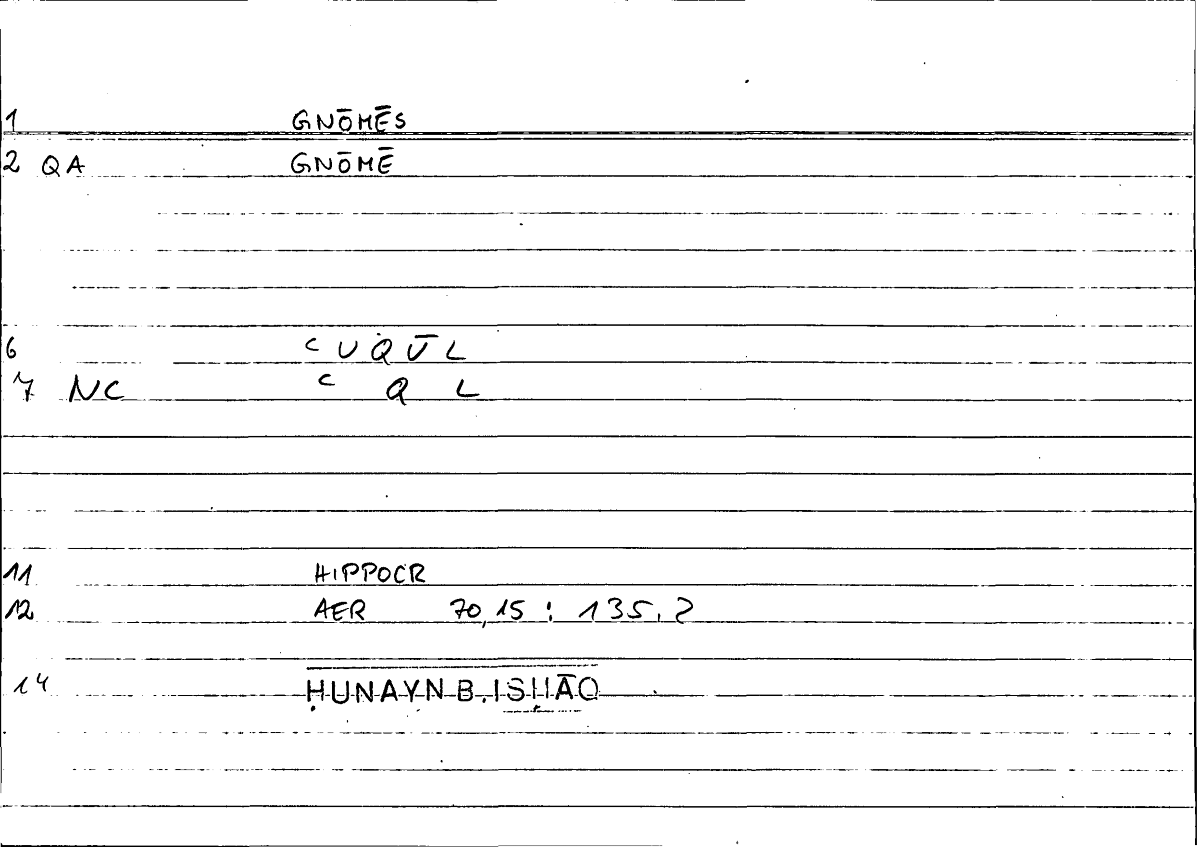 1 GNŌMĒS
2 QA GNŌMĒ
6 ᶜUQŪL
7 NC ᶜ Q L
11 HIPPOCR
12 AER 70,15 : 135,2
14 ḤUNAYN B. ISḤĀQ